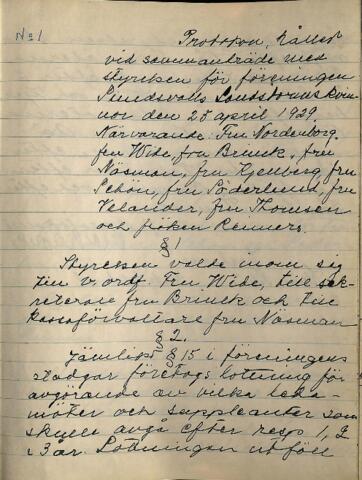 No 1
Protokoll, hållet
vid sammanträde med
styrelsen för föreningen
Sundsvalls Landstormskvin-
nor den 25 april 1929.
Närvarande: Fru Nordenborg,
fru Wide, fru Brinck, fru
Näsman, fru Hjemberg, fru
Schön, fru Söderlund, fru
Velander, fru Thomsen
och fröken Renners.
§ 1
Styrelsen valde inom sig
till v. ordf. Fru Wide, till sek-
reterare fru Brinck och till
kassaförvaltare fru Näsman
§ 2.
Jämlikt § 15 i föreningens
stadgar företogs lottning för
avgörande av vilka leda-
möter och suppleanter som
skulle avgå efter resp 1, 2
i 3 år. Lottningen utföll